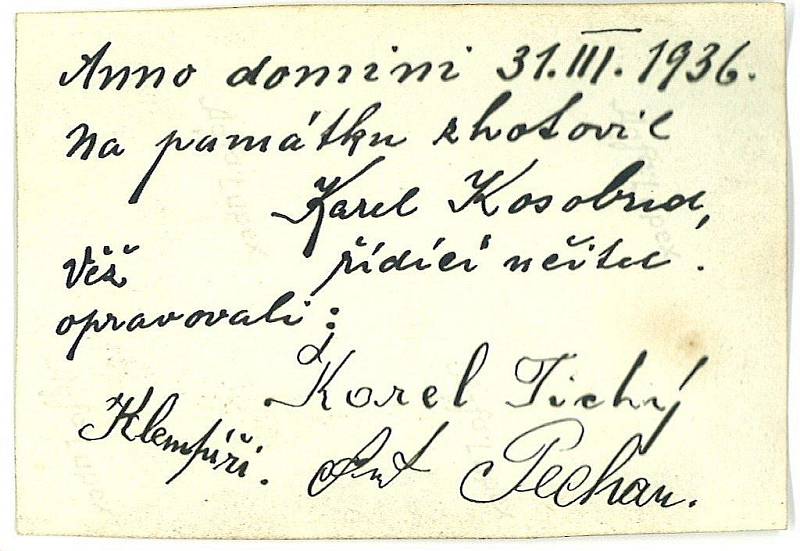 Anno domini 31.III. 1936.
Na památku zhotovil
Karel Kosobud,
řídící učitel.
Věž
opravovali:
Karel Tichý
Klempíři. Ant Pechan.